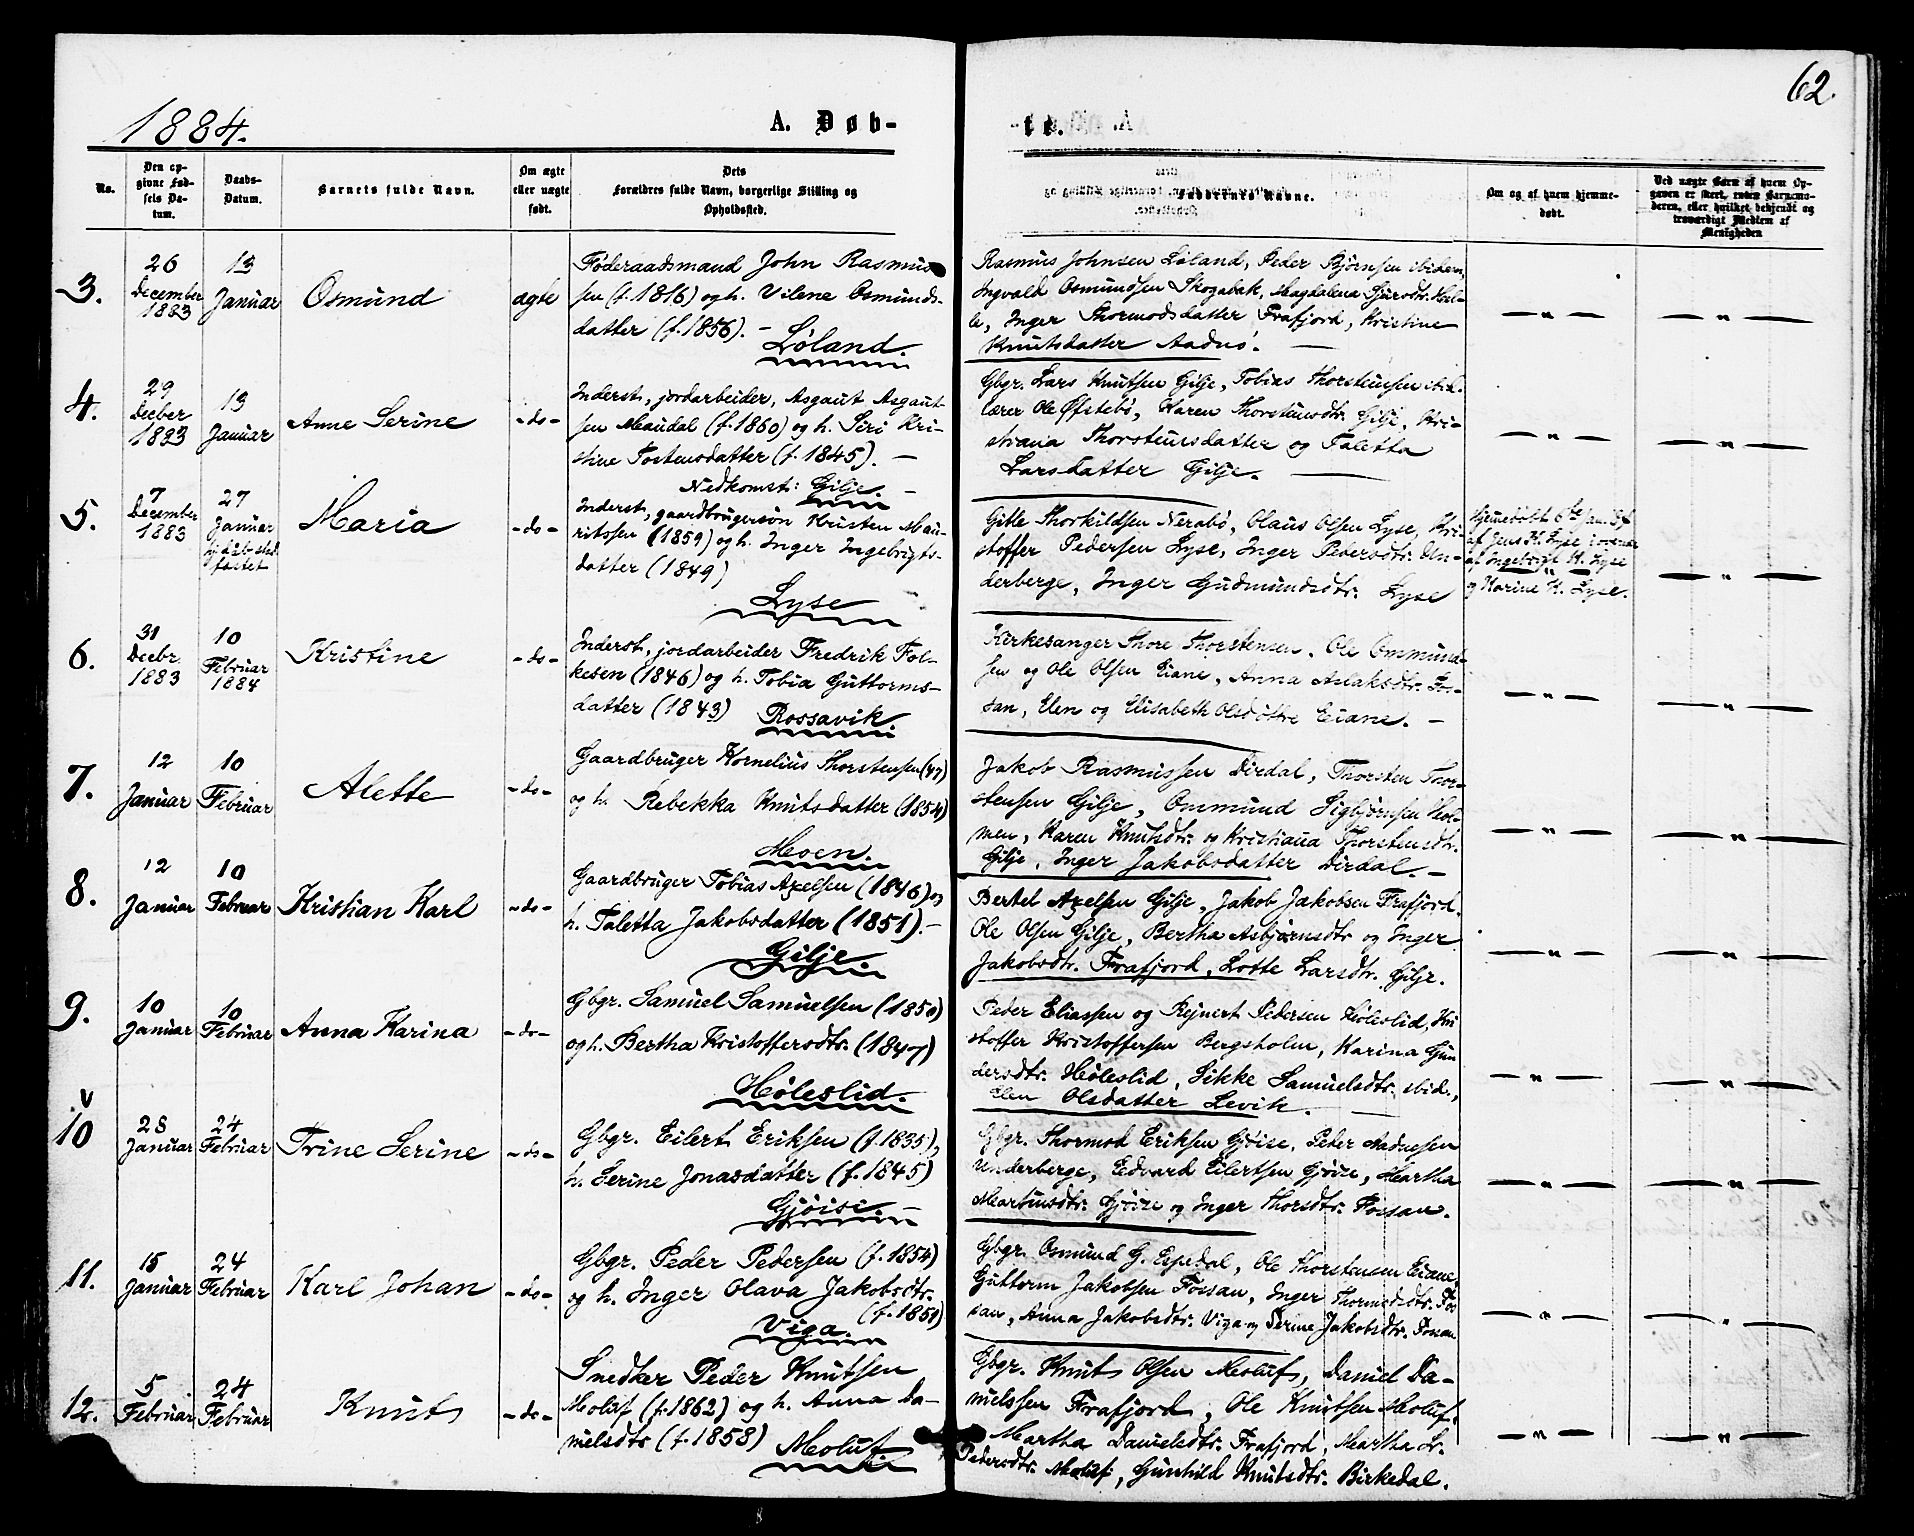 62.
1884.
A. Døb-
te.
No.
Den op-
givne Fød-
sels Da-
tum.
Daabs-
Datum.
Barnets fulde Navn.
Om ægte
eller uægte
født.
Dets
Forældres fulde Navn, borgerlige Stilling og
Opholdssted.
Faddernes Navne.
Om og af hvem hjemme-
døbt.
Ved uægte Børn af hvem Op-
gaven er skeet, enten Barnemo-
deren, eller hvilket bekjendt og
troværdigt Medlem af
Menigheden
3.
26
December
1883
13
Januar
Osmund
ægte
Føderaadsmand John Rasmus-
sen (f. 1816) og h. Vilene Osmunds-
datter (f. 1856). –
Løland.
Rasmus Johnsen Løland, Peder Bjørnsen ibidem,
Ingvald Osmundsen Skogabak, Magdalena Sjursdtr. Hal-
le, Inger Thormodsdatter Frafjord, Kristine
Knutsdatter Aadnø. –
– " –
– " –
4.
29
Decber
1883
13
Januar
Anne Serine
-do-
Inderst, jordarbeider, Asgaut Asgaut-
sen Maudal (f. 1860) og h. Siri Kri-
stine Tostensdatter (f. 1845). –
Nedkomst: Gilje. –
Gbgr. Lars Knutsen Gilje, Tobias Thorstensen ibid.
lærer Ole Øfstebø, Karen Thorstensdtr. Gilje, Kri-
striana Thorstensdatter og Taletta
Larsdatter Gilje. –
– " –
– " –
5.
7
December
1883
27
Januar
dåb stad-
fæstet
Maria
-do-
Inderst, gaardbrugersøn Kristen Mau-
ritssen (1859) og h. Inger Ingebrigts-
datter (1849)
Lyse
Gitle Thorkildsen Nerabø, Olaus Olsen Lyse, Kri-
stoffer Pedersen Lyse, Inger Pedersdtr. Un-
derberge, Inger Gudmundsdtr. Lyse
Hjemedøbt 6te Jan. 84
af Jens K. Lyse
af Ingebrigt K. Lyse
og Karine K. Lyse.
– " –
6.
31
Decbr.
1883
10
Februar
1884
Kristine
-do-
Inderst, jordarbeider Fredrik Fol-
kesen (1846) og h. Tobia Guttorms-
datter (1843)
Rossavik.
Kirkesanger Thore Thorstensen, Ole Ommund-
sen og Ole Olsen Eiane, Anna Aslaksdtr. Fos-
san, Elen og Elisabeth Olsdøttre Eiane. –
– " –
– " –
7.
12
Januar
10
Februar
Alette
-do-
Gaardbruger Kornelius Thorstensen (47)
og h. Rebekka Knutsdatter (1854)
Moen.
Jakob Rasmussen Dirdal, Thorsten Thor-
stensen Gilje, Ommund Sigbjørnsen Hol-
men, Karen Knutsdtr. og Kristiana Thorstensdtr.
Gilje, Inger Jakobsdatter Dirdal. –
– " –
– " –
8.
12
Januar
10
Februar
Kristian Karl
-do-
Gaardbruger Tobias Axelsen (1846) og
h. Taletta Jakobsdatter (1851). –
Gilje.
Bertel Axelsen Gilje, Jakob Jakobsen Frafjord.
Ole Olsen Gilje, Bertha Asbjørnsdtr og Inger
Jakobsdtr. Frafjord, Lotte Larsdtr. Gilje.
– " –
– " –
9.
10
Januar
10
Februar
Anna Karina
-do-
Gbgr. Samuel Samuelsen (1850)
og h. Bertha Kristoffersdtr. (1847)
Høleslid.
Peder Eliassen og Rejnert Pedersen Høleslid, Kri
stoffer Kristoffersen Bergsholm, Karina Gun
dersdtr. Høleslid, Sikke Samuelsdtr. ibid.,
Elen Olsdatter Levik. –
– " –
– " –
v
10
28
Januar
24
Februar
Trine Serine
-do-
Gbgr. Eilert Eriksen (f. 1835),
h. Serine Jonasdatter (f. 1845)
Gjøise. –
Gbgr. Thormod Eriksen Gjøise, Peder Aadnesen
Underberge, Edvard Eilertsen Gjøise, Martha
Martinsdtr. Gjøise og Inger Thorsdtr. Fossan.
– " –
– " –
11.
15
Januar
24
Februar
Karl Johan
-do-
Gbgr. Peder Pedersen (f. 1854)
og h. Inger Olava Jakobsdtr.
(f. 1859)
Viga.
Gbgr. Osmund G. Espedal, Ole Thorstensen Eiane,
Guttorm Jakobsen Fossan, Inger Thormodsdtr. Fos
san, Anna Jakobsdtr. Viga og Serine Jakobsdtr. Fossan
– " –
– " –
12.
5
Februar
24
Februar
Knut
-do-
Snedker Peder Knutsen
Moluf (f. 1862) og h. Anna Da-
nielsdtr (f. 1858)
Moluf.
Gbgr. Knut Olsen Moluf, Daniel Da-
nielssen Frafjord, Ole Knutsen Moluf.
Martha Danielsdtr. Frafjord, Martha Sr.
Pedersdtr. Moluf, Gunhild Knutsdtr. Birkedal.
– " –
– " –
8